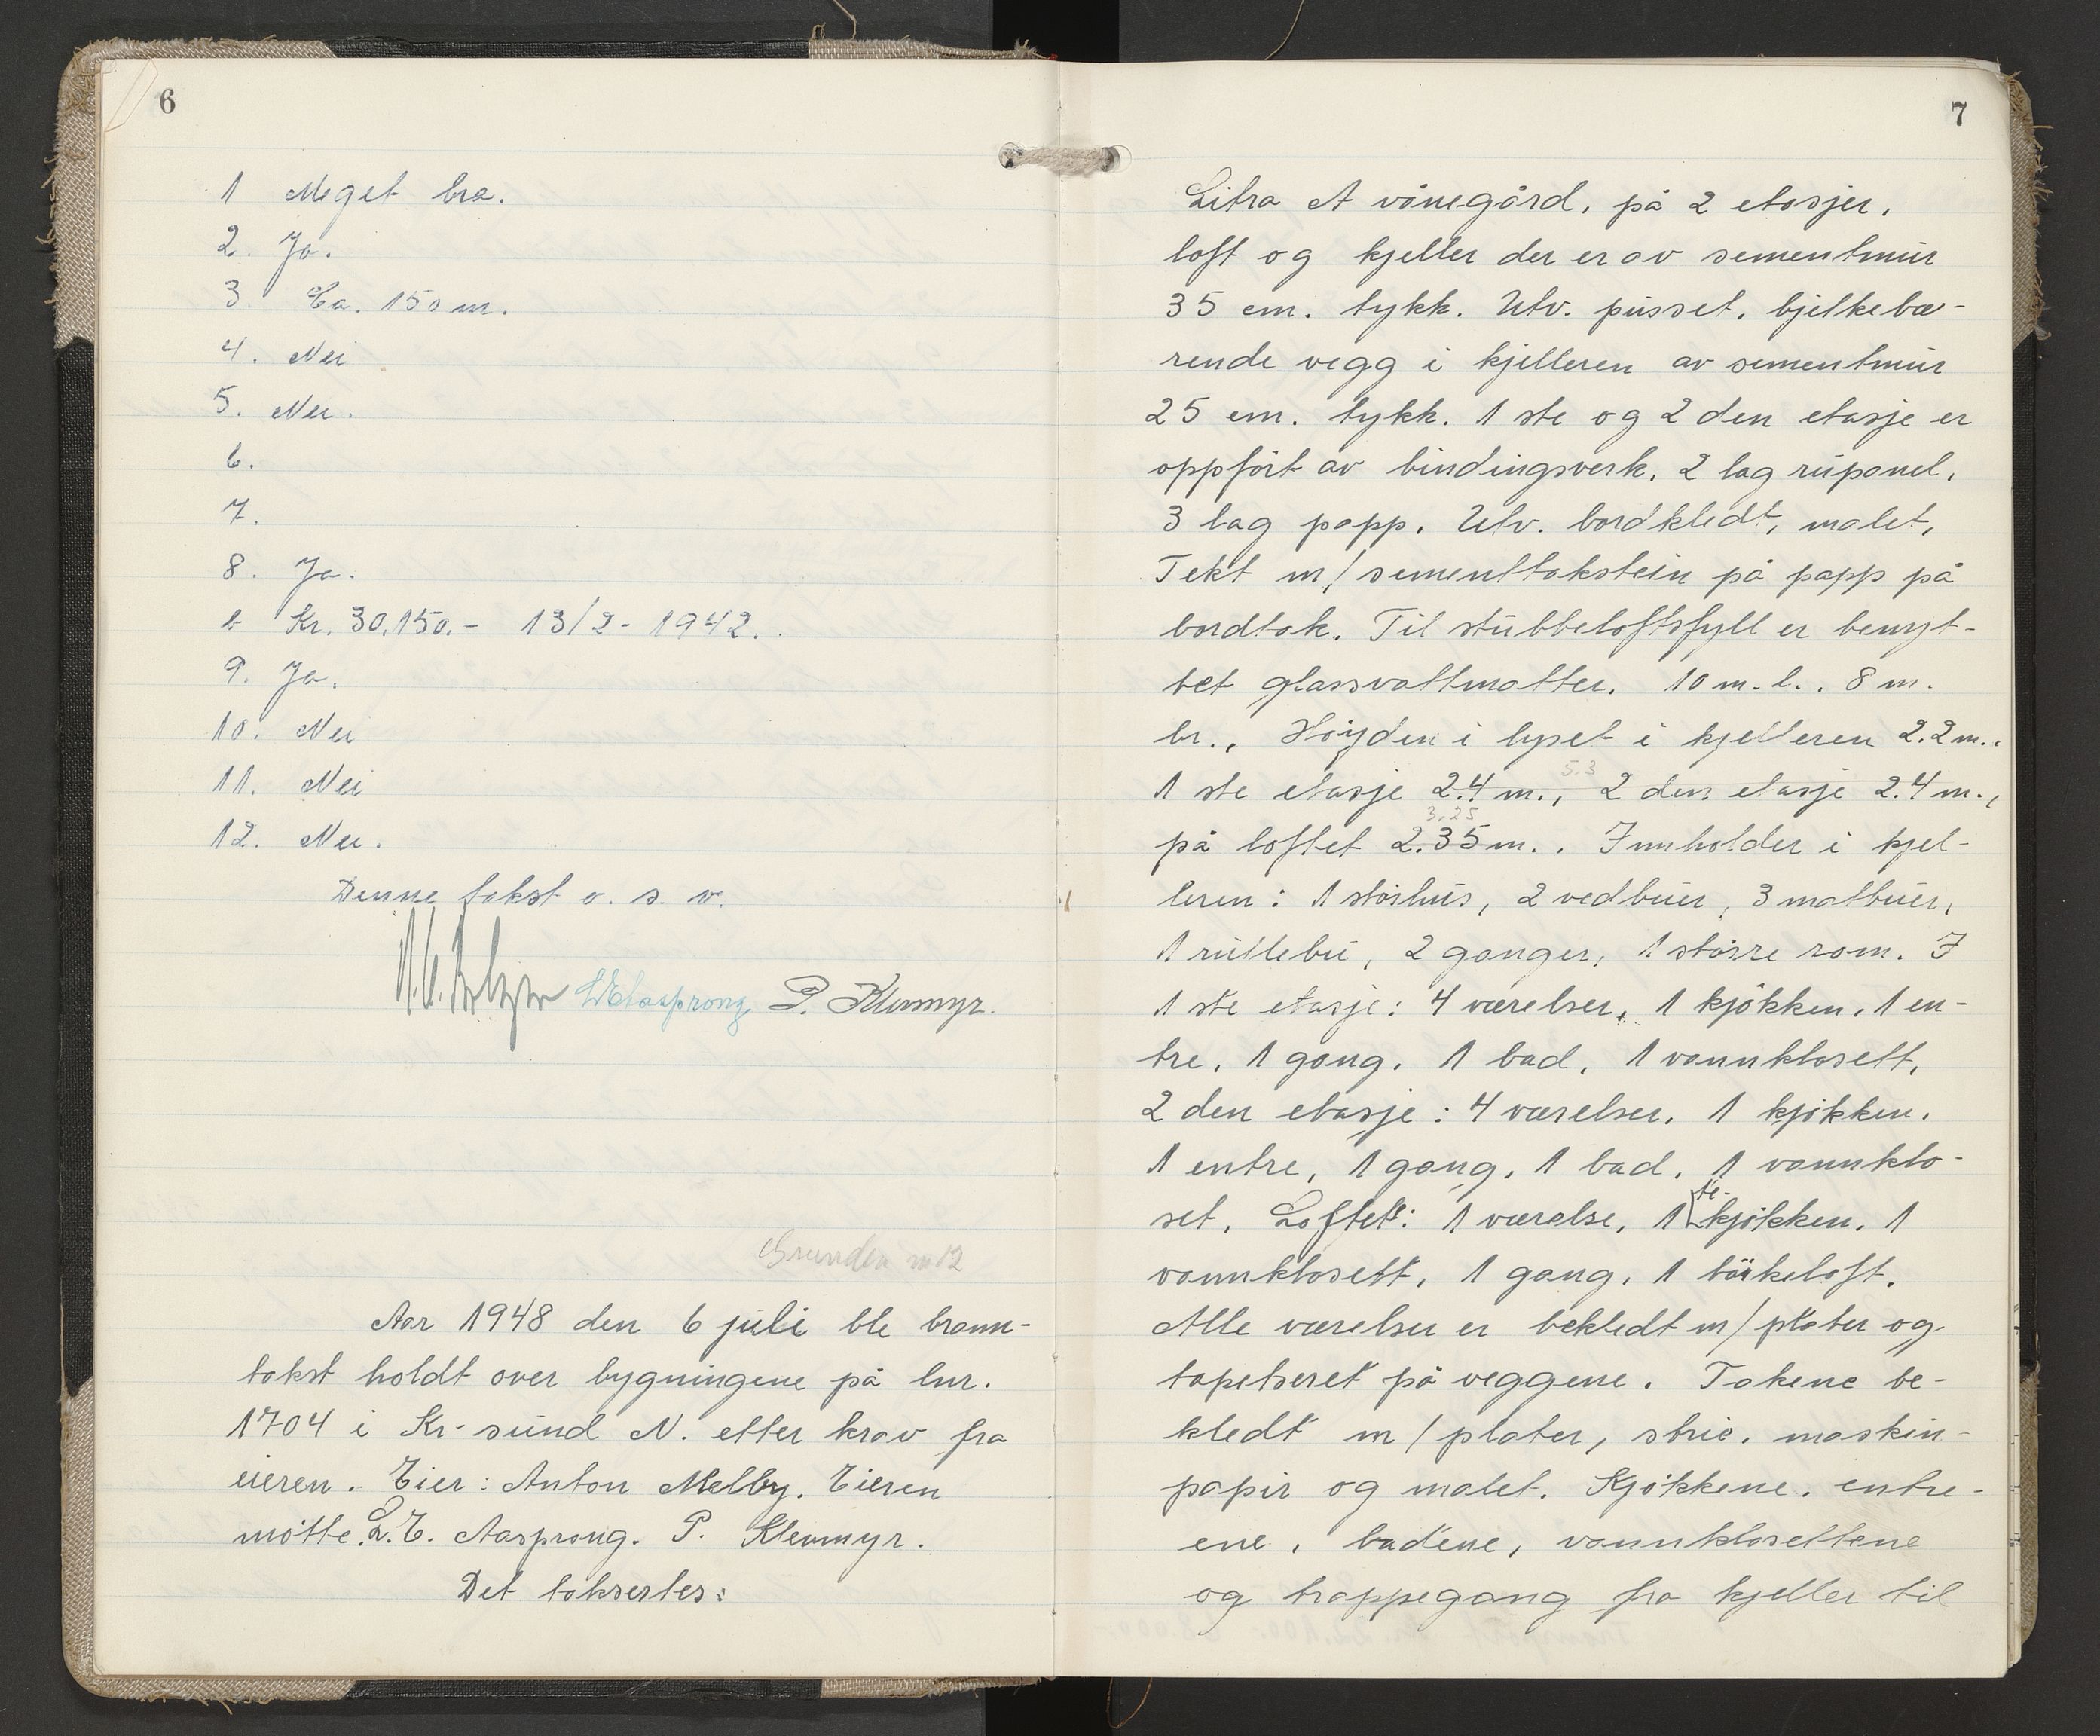 6
1 Meget bra.
2. Ja.
3. Ca. 150 m.
4. Nei
5. Nei.
6.
7.
8. Ja.
b Kr. 30.150.- 13/2 - 1942.
9. Ja.
10. Nei
11. Nei
12. Nei.
Denne takst o. s. v.
L. E. Aasprong P. Klevmyr.
Grunden nr 12
Aar 1948 den 6 juli ble brann-
takst holdt over bygningene på lnr.
1704 i Kr-sund N. etter krav fra
eieren. Eier: Anton Melby. Eieren
møtte. L. E. Aasprong. P. Klevmyr.
Det taksertes:
7
Litra A vånegård, på 2 etasjer,
loft og kjeller der er av sementmur
35 cm. tykk. Utv. pusset, bjelkebæ-
rende vegg i kjelleren av sementmur
25 cm. tykk. 1 ste og 2 den etasje er
oppført av bindingsverk, 2 lag rupanel,
3 lag papp. Utv. bordkledt, malet,
Tekt m/ sementtakstein på papp på
bordtak. Til stubbeloftsfyll er benyt-
tet glassvattmatter. 10 m. l., 8 m.
br., Høyden i lyset i kjelleren 2.2 m.,
5.3
1 ste etasje 2.4 m., 2 den etasje 2.4 m.,
3.25
på loftet 2.35 m.. Innholder i kjel-
leren: 1 vashus, 2 vedbuer, 3 matbuer,
1 rullebu, 2 ganger, 1 større rom. I
1 ste etasje: 4 værelser, 1 kjøkken, 1 en-
tre, 1 gang, 1 bad, 1 vannklosett,
2 den etasje: 4 værelser, 1 kjøkken,
1 entre, 1 gang, 1 bad, 1 vannklo-
set, Loftet: 1 værelse, 1 te-kjøkken, 1
vannklosett, 1 gang, 1 tørkeloft.
Alle værelser er bekledt m/ plater og
tapetseret på veggene. Takene be-
kledt m/ plater, strie, maskin-
papir og malet. Kjøkkene, entre-
ene, badene, vannklosettene
og trappegang fra kjeller til